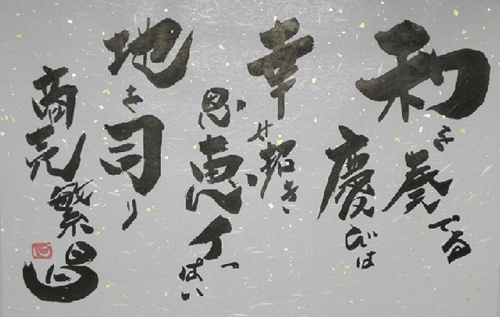 和を奏でる
慶びは
幸せ招き
恩恵イっぱい
地を司り
商売繁昌